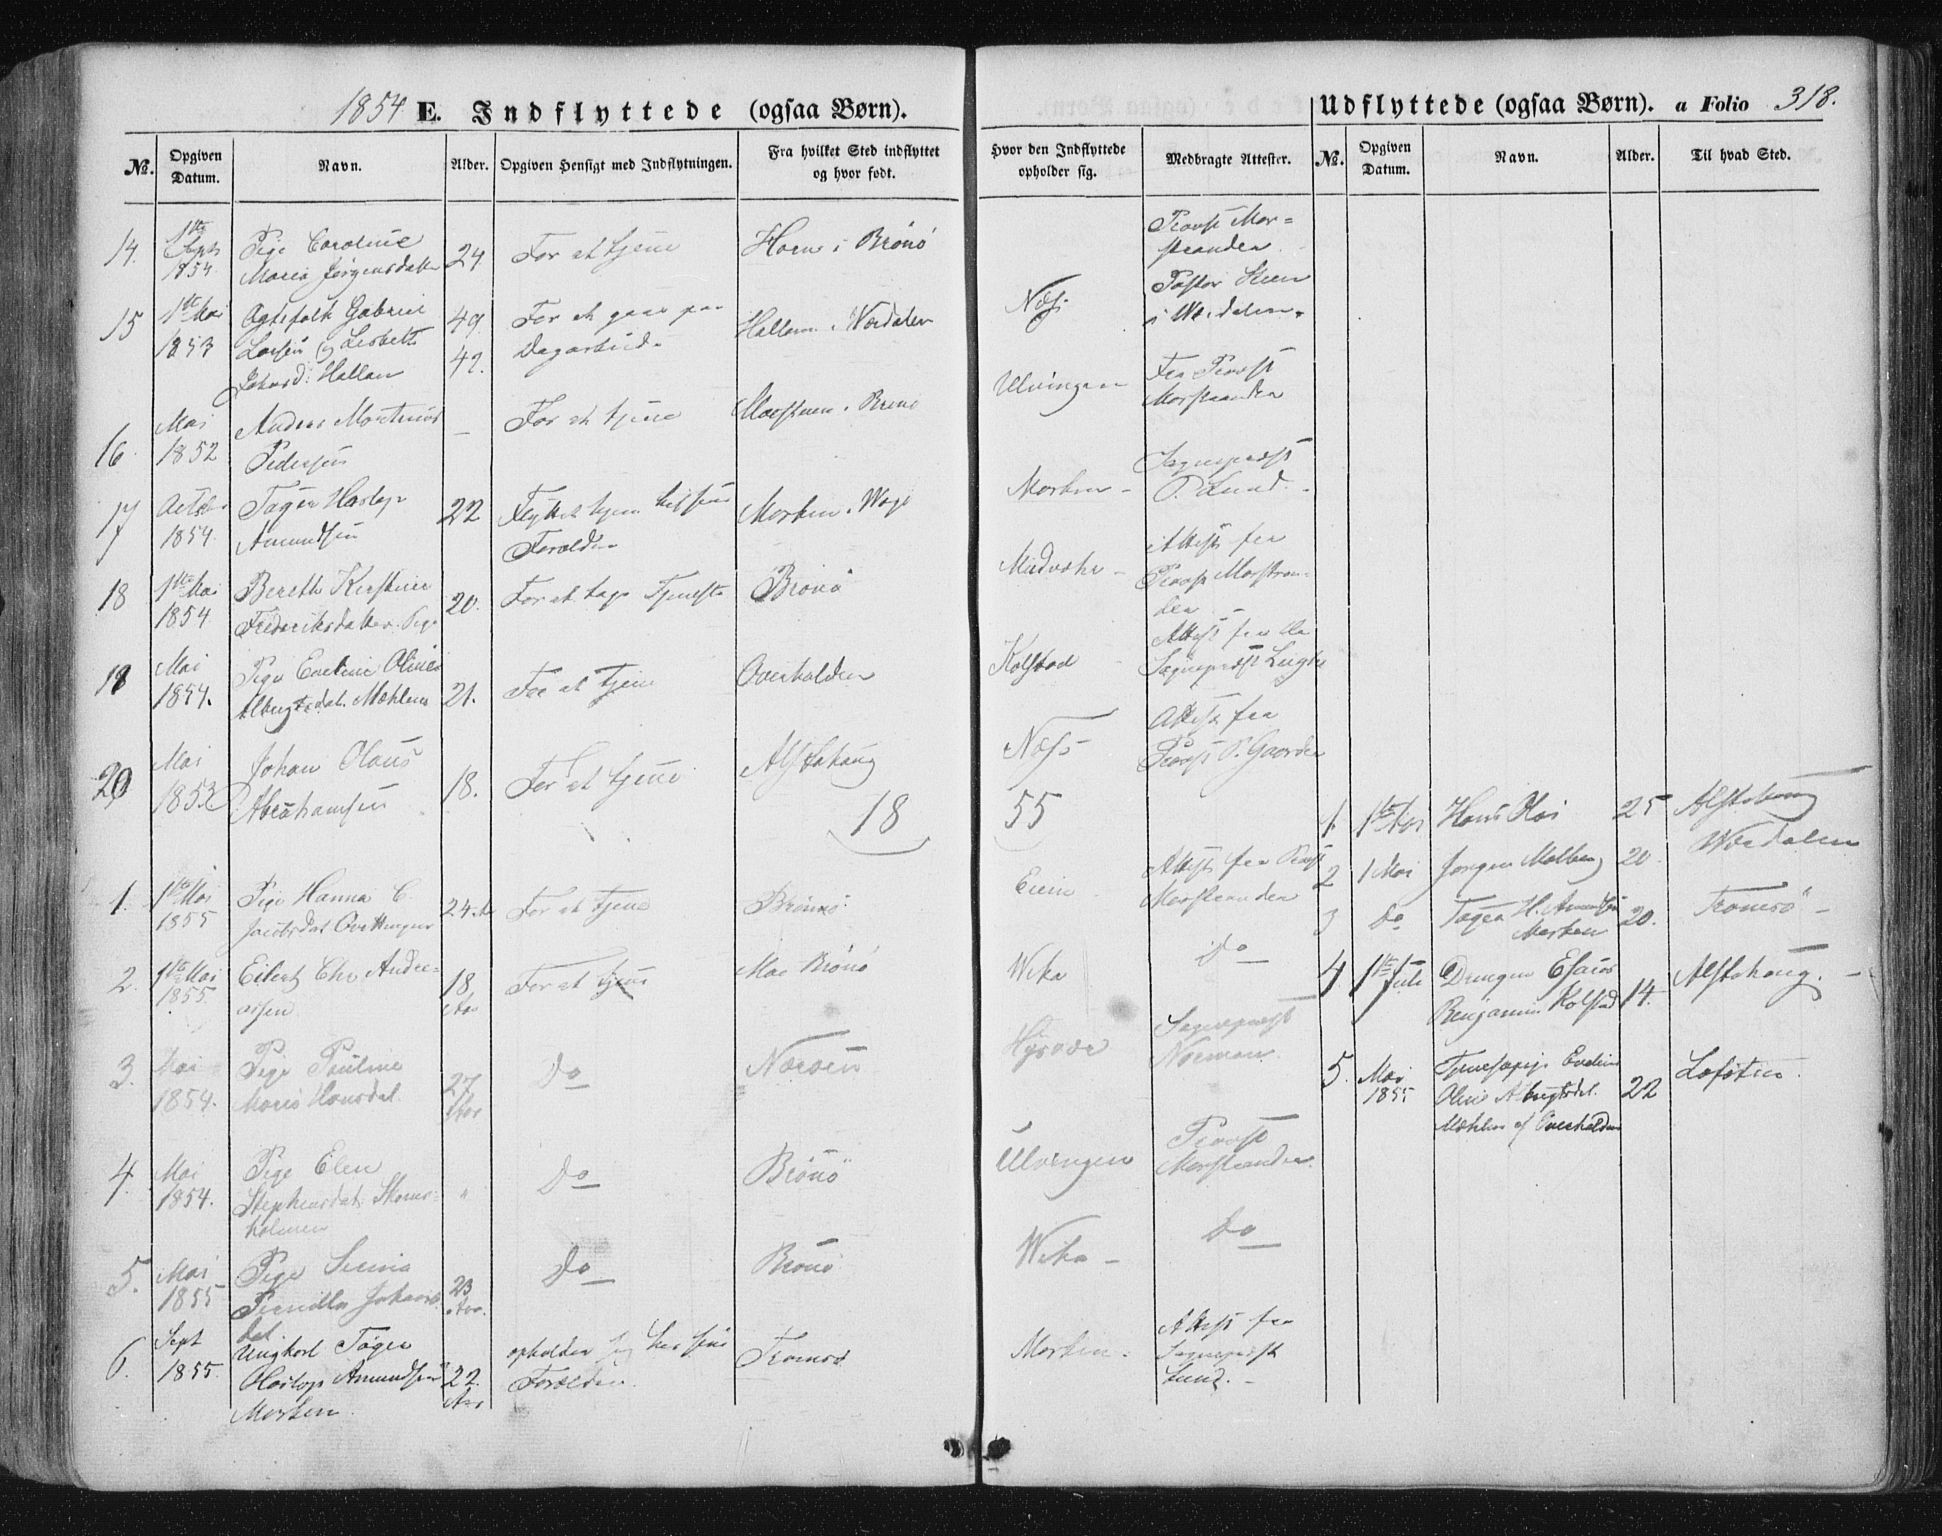 1854 E. Indflyttede (ogsaa Børn).
Udflyttede (ogsaa Børn). a Folio 318.
No. Opgiven Datum. Navn. Alder. Opgiven Hensigt med Indflytningen. Fra hvilket Sted indflyttet og hvor født.
Hvor den Indflyttede opholder sig. Medbragte Attester. No. Opgiven Datum. Navn. Alder. Til hvad Sted.
14. 1ste Sept 1854. Pige Caroline Maria Jørgensdatter 24 For at tjene Horn i Brönö
Provst Morstranden
15 1ste Mai 1853 Ægtefolk Gabriel Larsen og Lisbeth Johnsd: Hallan 49. 42. For at gaae paa Dagarbeid. Hallem i Værdalen
Næss Pastor Steen i Værdalen.
16. Mai 1852 Anders Martinus Pedersen – For at tjene Brönö
Ulvingen Fra Provst Morstranden
17 1854. Tøger Hastop Amundsen 22 til sine Forældre Morken i Wage
Morken – Sognepræst P. Lund. –
18 1ste Mai 1854 Bereth Kirstine Frederiksdatter. Pige 20. For at tage Tjeneste Brönö
Attest fra Provst Morstranden
19 Mai 1854. Pige Eveline Oline Albrigtsdat. Mæhlen 21. For at tjene Overhalden
Kolstad Attest fra Sognepræst
20 Mai 1853 Johan Olaus Abrahamsen 18. For at tjene Alstahoug
Næss Attest fra Provst P. Gaarder
18
55
1. 1ste Mai 1855 Pige Hanna C. Jacobsdat 24 Aar For at tjene Brönnö
Attest fra Provst Morstranden
2. 1ste Mai 1855. Eilert Chr Andreassen 18. Aar For at tjene Brönö
Wika Do
3. Mai 1854. Pige Pauline Maria Hansdat. 27 Aar Do Næröen
Sognepræst Norman.
4. Mai 1854. Pige Elen Stephensdat. holmen " Do Brönö
Ulvingen Provst Morstranden.
5. Mai 1855 Pige Pernilla Johansdat. 23 Aar. Do Brönö
Wika – Do
6. Sept 1855. Ungkarl Tøger Hastop Amundsen Morken 22. Aar opholder sig hos sine Forældre. Tromsö
Morken. Attest fra Sognepræst Lund. –
1. Hans 25 Alstahoug
2 1 Mai Jørgen 20. Værdalen
3 Do Tøger H. Amundsen Morken 20. Tromsö –
4 1ste Juli Drengen Esaias Benjamin Kolstad 14. Alstahoug. –
5. Mai 1855 Tjenestepige Eveline Oline Albrigtsdat. Mæhlen af Overhalden 22 Lofoten.